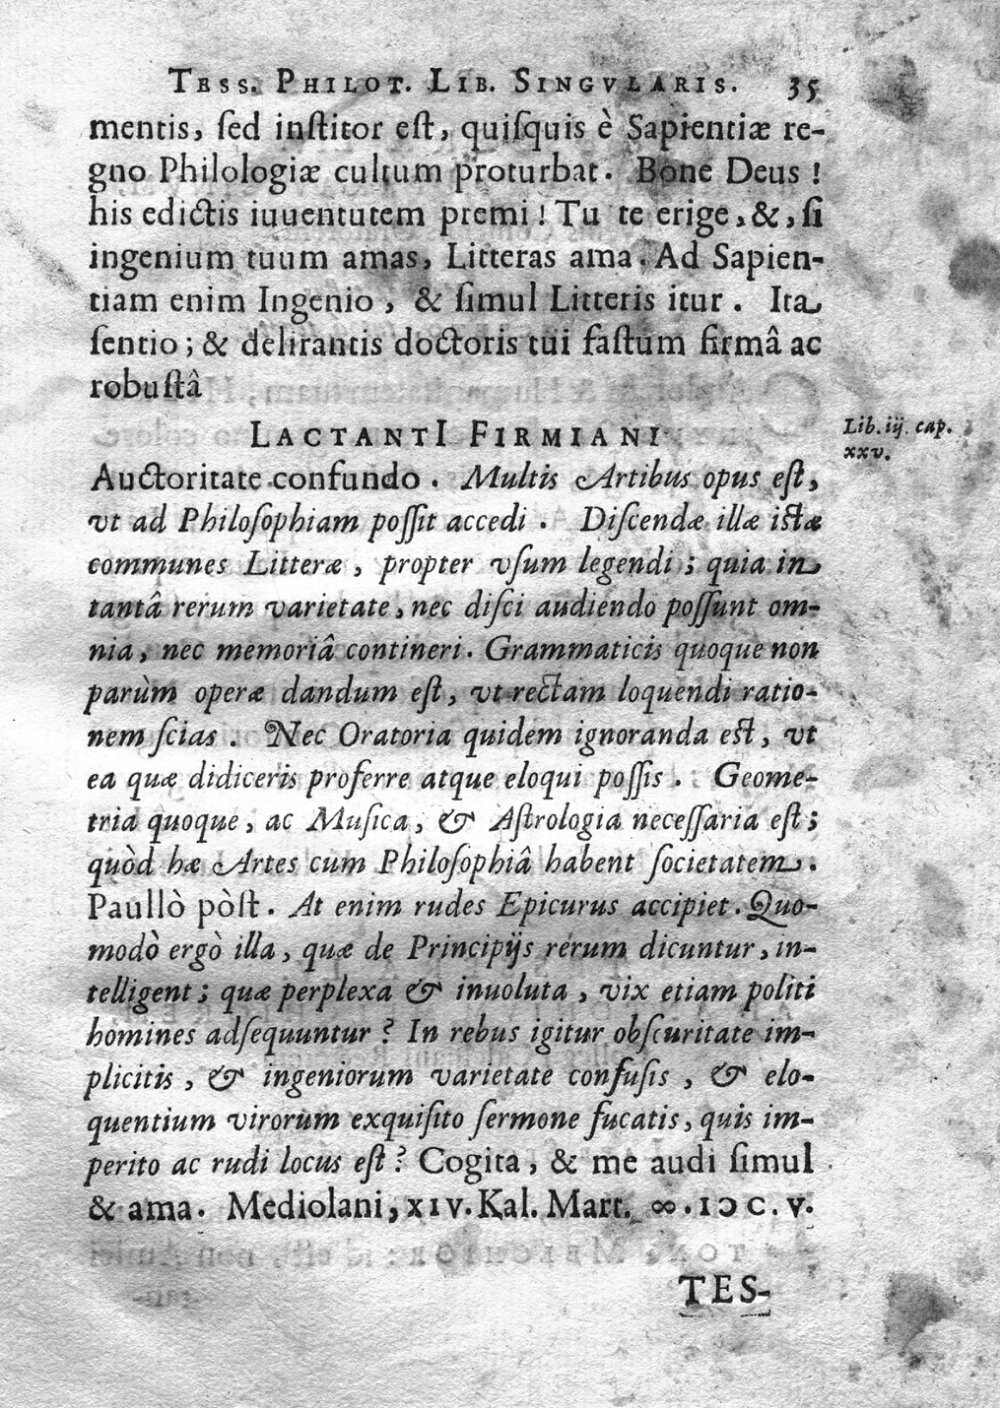 TESS. PHILOT. LIB. SINGVLARIS. 35
mentis, sed institor est, quisquis è Sapientiæ re-
gno Philologiæ cultum proturbat. Bone Deus!
his edictis iuuentutem premi! Tu te erige, &, si
ingenium tuum amas, Litteras ama. Ad Sapien-
tiam enim Ingenio, & simul Litteris itur. Ita
sentio; & delirantis doctoris tui fastum firmâ ac
robustâ
LACTANTI FIRMIANI
Lib. iij. cap.
xxv.
Auctoritate confundo. Multis Artibus opus est,
vt ad Philosophiam possit accedi. Discendæ illæ istæ
communes Litteræ, propter vsum legendi; quia in
tantâ rerum varietate, nec disci audiendo possunt om-
nia, nec memoriâ contineri. Grammaticis quoque non
parùm operæ dandum est, vt rectam loquendi ratio-
nem scias. Nec Oratoria quidem ignoranda est, vt
ea quæ didiceris proferre atque eloqui possis. Geome-
tria quoque, ac Musica, & Astrologia necessaria est;
quòd hæ Artes cum Philosophiâ habent societatem.
Paullò pòst. At enim rudes Epicurus accipiet. Quo-
modò ergò illa, quæ de Principijs rerum dicuntur, in-
telligent; quæ perplexa & inuoluta, vix etiam politi
homines adsequuntur? In rebus igitur obscuritate im-
plicitis, & ingeniorum varietate confusis, & elo-
quentium virorum exquisito sermone fucatis, quis im-
perito ac rudi locus est? Cogita, & me audi simul
& ama. Mediolani, XIV. Kal. Mart. ∞. IↃC. V.
TES-